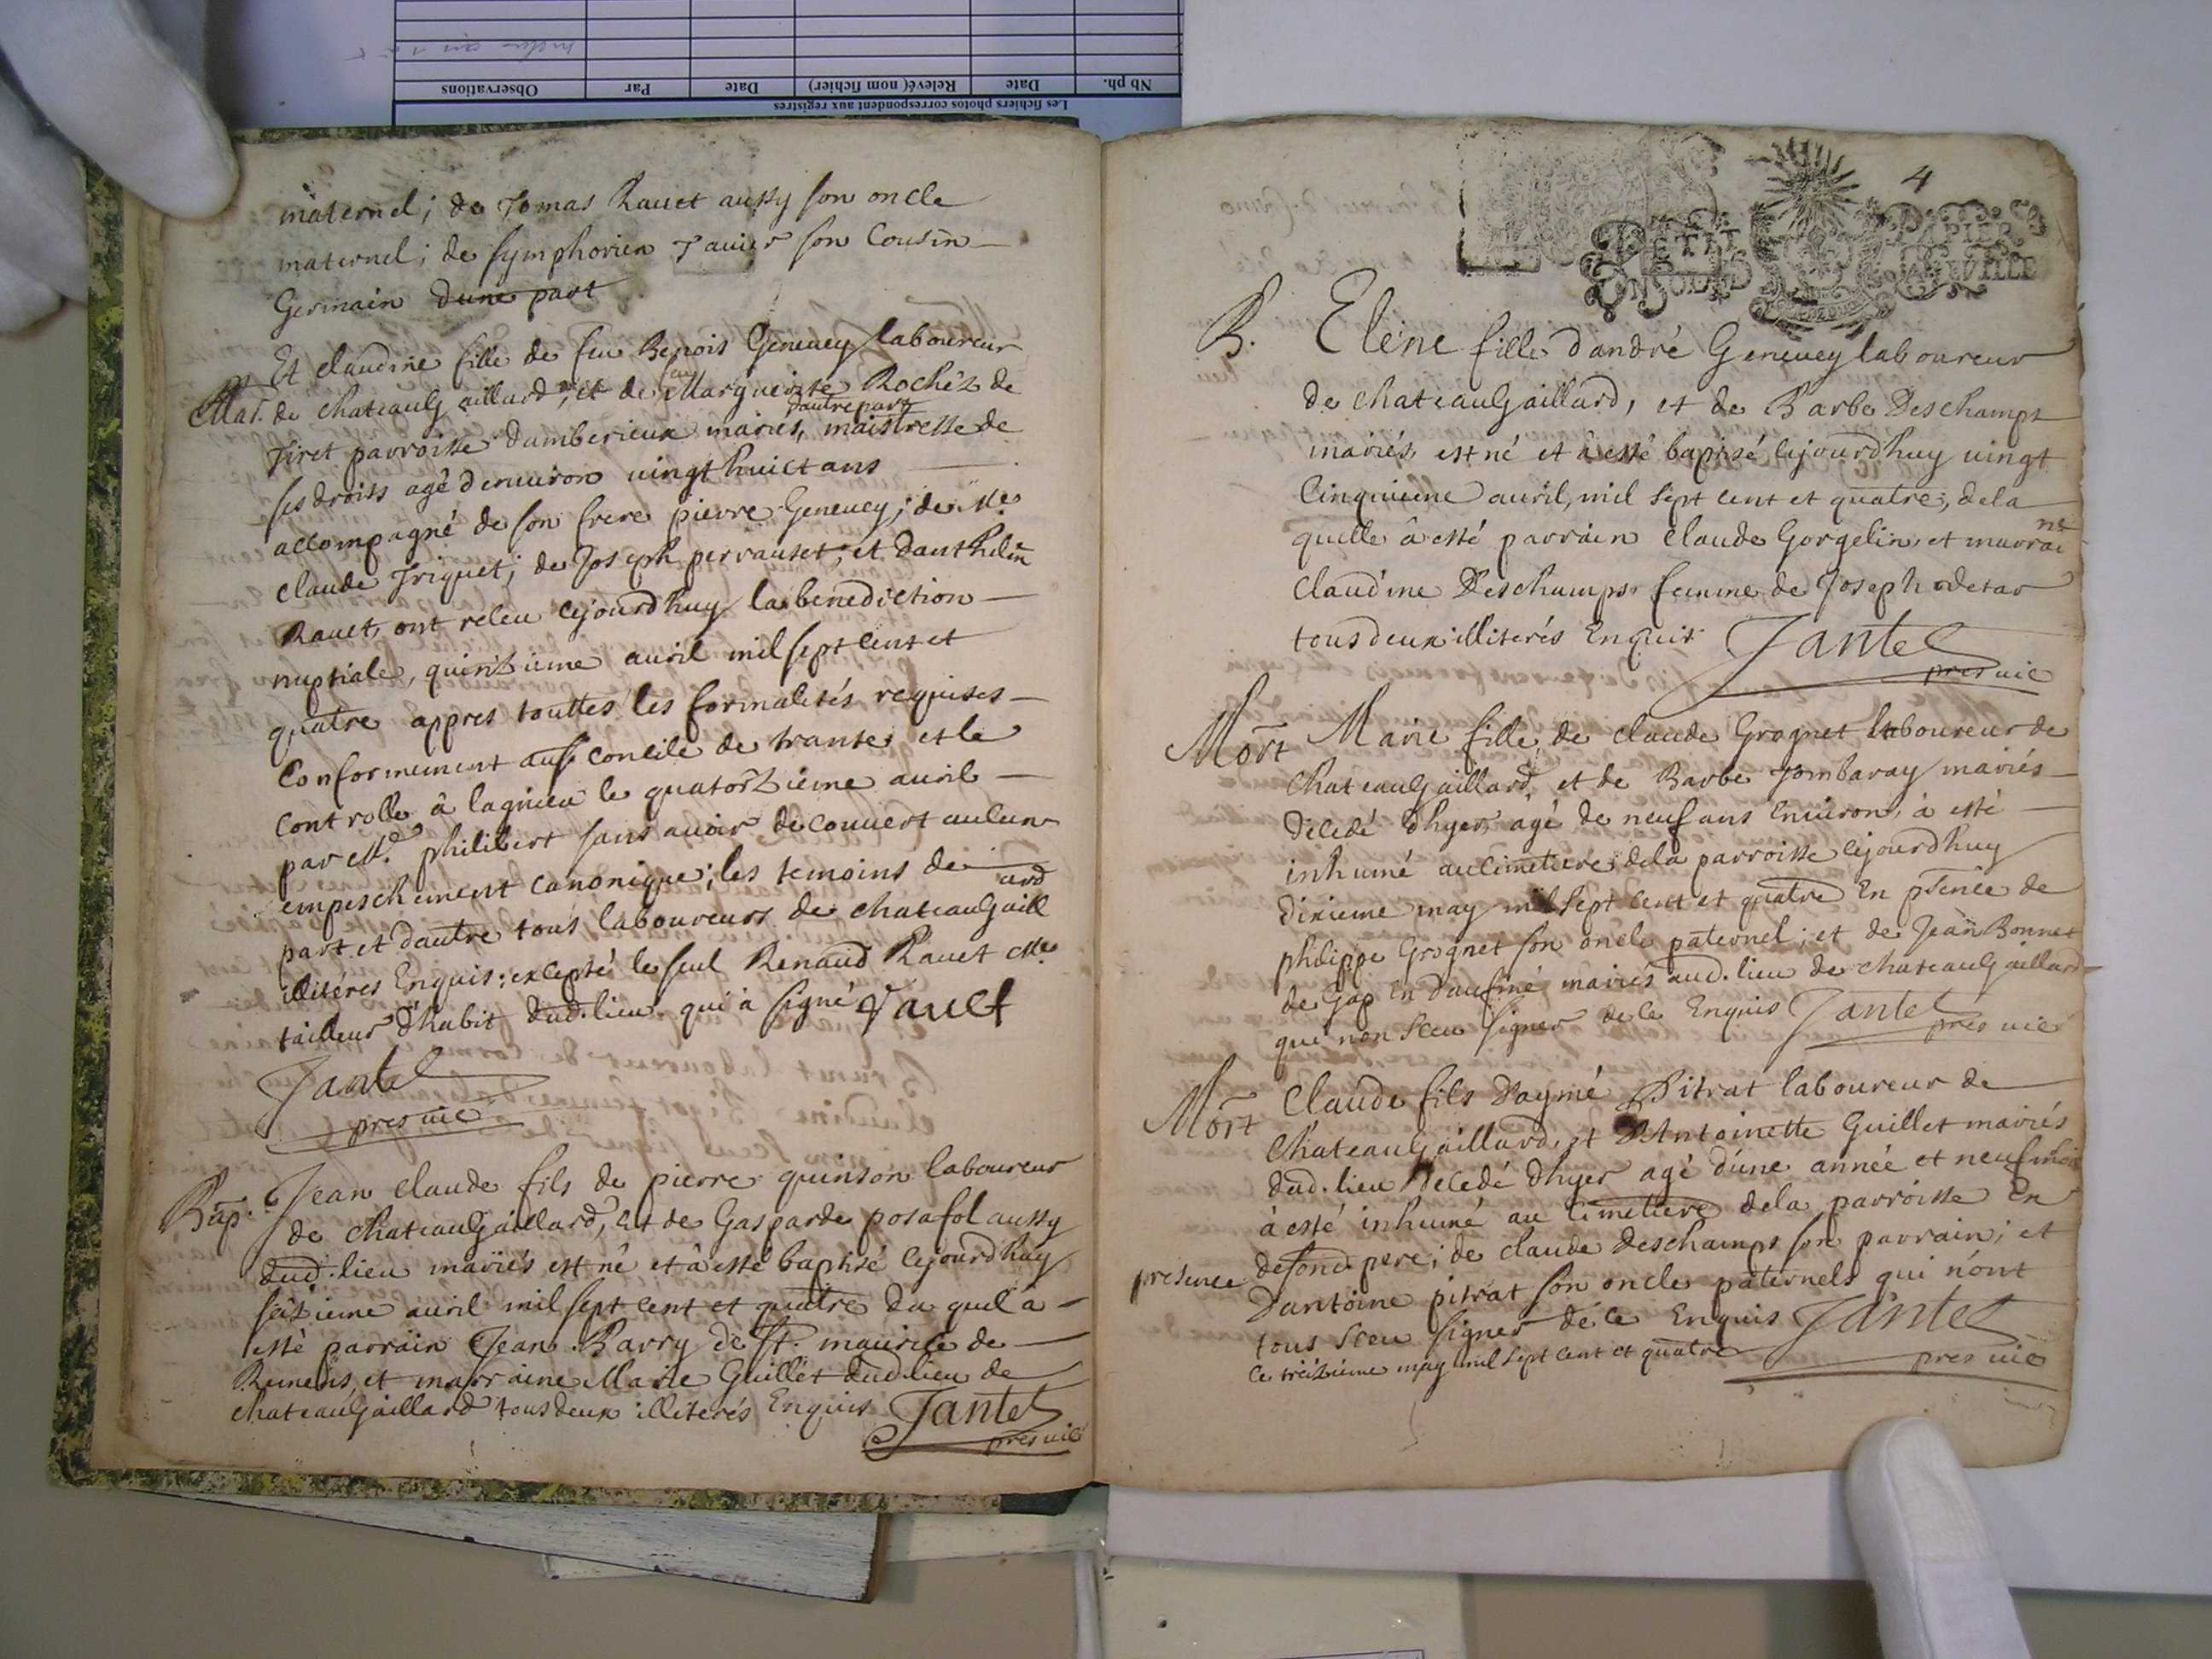 Nb ph.
Date
Relevé( nom fichier)
Date
Par
Observations
Les fichiers photos correspondent aux registres
maternel; de Tomas Rauet aussy son oncle
maternel; de symphorien Tauier son Cousin
Germain dune part
Et claudine fille de feu Benois Geneuey laboureur
Mar. de chateauGaillard, et de feu Marguerite Rochéz de
Tiret parroisse damberieux mariés, dautre part maistresse de
ses droits agé denuiron uingt huict ans
accompagné de son frere pierre Geneuey; de Me
claude Triquet; de Joseph peruauset; et danthelm
Rauet, ont releu cejourdhuy la benediction
nuptiale, quinzieme auril mil sept cent et
quatre appres touttes les formalités requises
Conformement au concile de trante et le
controlle à lagnieu le quatorzieme auril
par Me. philibert sans auoir decouuert aulcun
empeschement canonique; les temoins de
part et dautre tous laboureurs de chateauGaillard
illitéres Enquis: excepté le seul Renaud Rauet Me.
tailleur d'habit dud. lieu qui à signé Rauet
Jantet
pres uic
Bap. Jean claude fils de pierre quinson laboureur
de chateauGaillard, et de Gasparde posafol aussy
dud. lieu mariés est né et à esté baptisé cejourdhuy
seizieme auril mil sept cent et quatre du quel à
esté parrain Jean Barry de St. maurice de
Remens, et marraine Marie Guillet dud. lieu de
chateauGaillard tous deux illiterés Enquis Jantet
pres uic
4
PETIT PAPIER
UN SOL LA FEUILLE
B. Elene fille d'andré Geneuey laboureur
de chateauGaillard, et de Barbe Deschamps
mariés, est né et à esté baptisé cejourdhuy uingt
Cinquieme auril, mil sept cent et quatre, dela
quelle à esté parrain claude Gorgelin, et marraine
Claudine Deschamps femme de Joseph detar
tous deux illiterés Enquis Jantet
pres uic
Mort Marie fille de claude Grognet laboureur de
chateauGaillard, et de Barbe Tombaray mariés
decedé d'hyer, agé de neuf ans Enuiron, à esté
inhumé au cimetiere de la parroisse cejourdhuy
dixieme may mil sept cent et quatre En psence de
philippe Grognet son oncle paternel; et de Jean Bonnet
de Gap En daufiné mariés aud. lieu de chateauGaillard
qui non sceu signer de ce Enquis Jantet
pres uic
Mort Claude fils daymé Pitrat laboureur de
chateauGaillard, et d'Antoinette Guillet mariés
dud. lieu decedé d'hyer agé d'une année et neuf mois
à esté inhumé au cimetiere de la parroisse En
presence de son d. pere; de claude Deschamps son parrain; et
Dantoine pitrat son oncle paternels qui n'ont
tous sceu signer de ce Enquis Jantet
ce treizieme may mil sept cent et quatre
pres uic